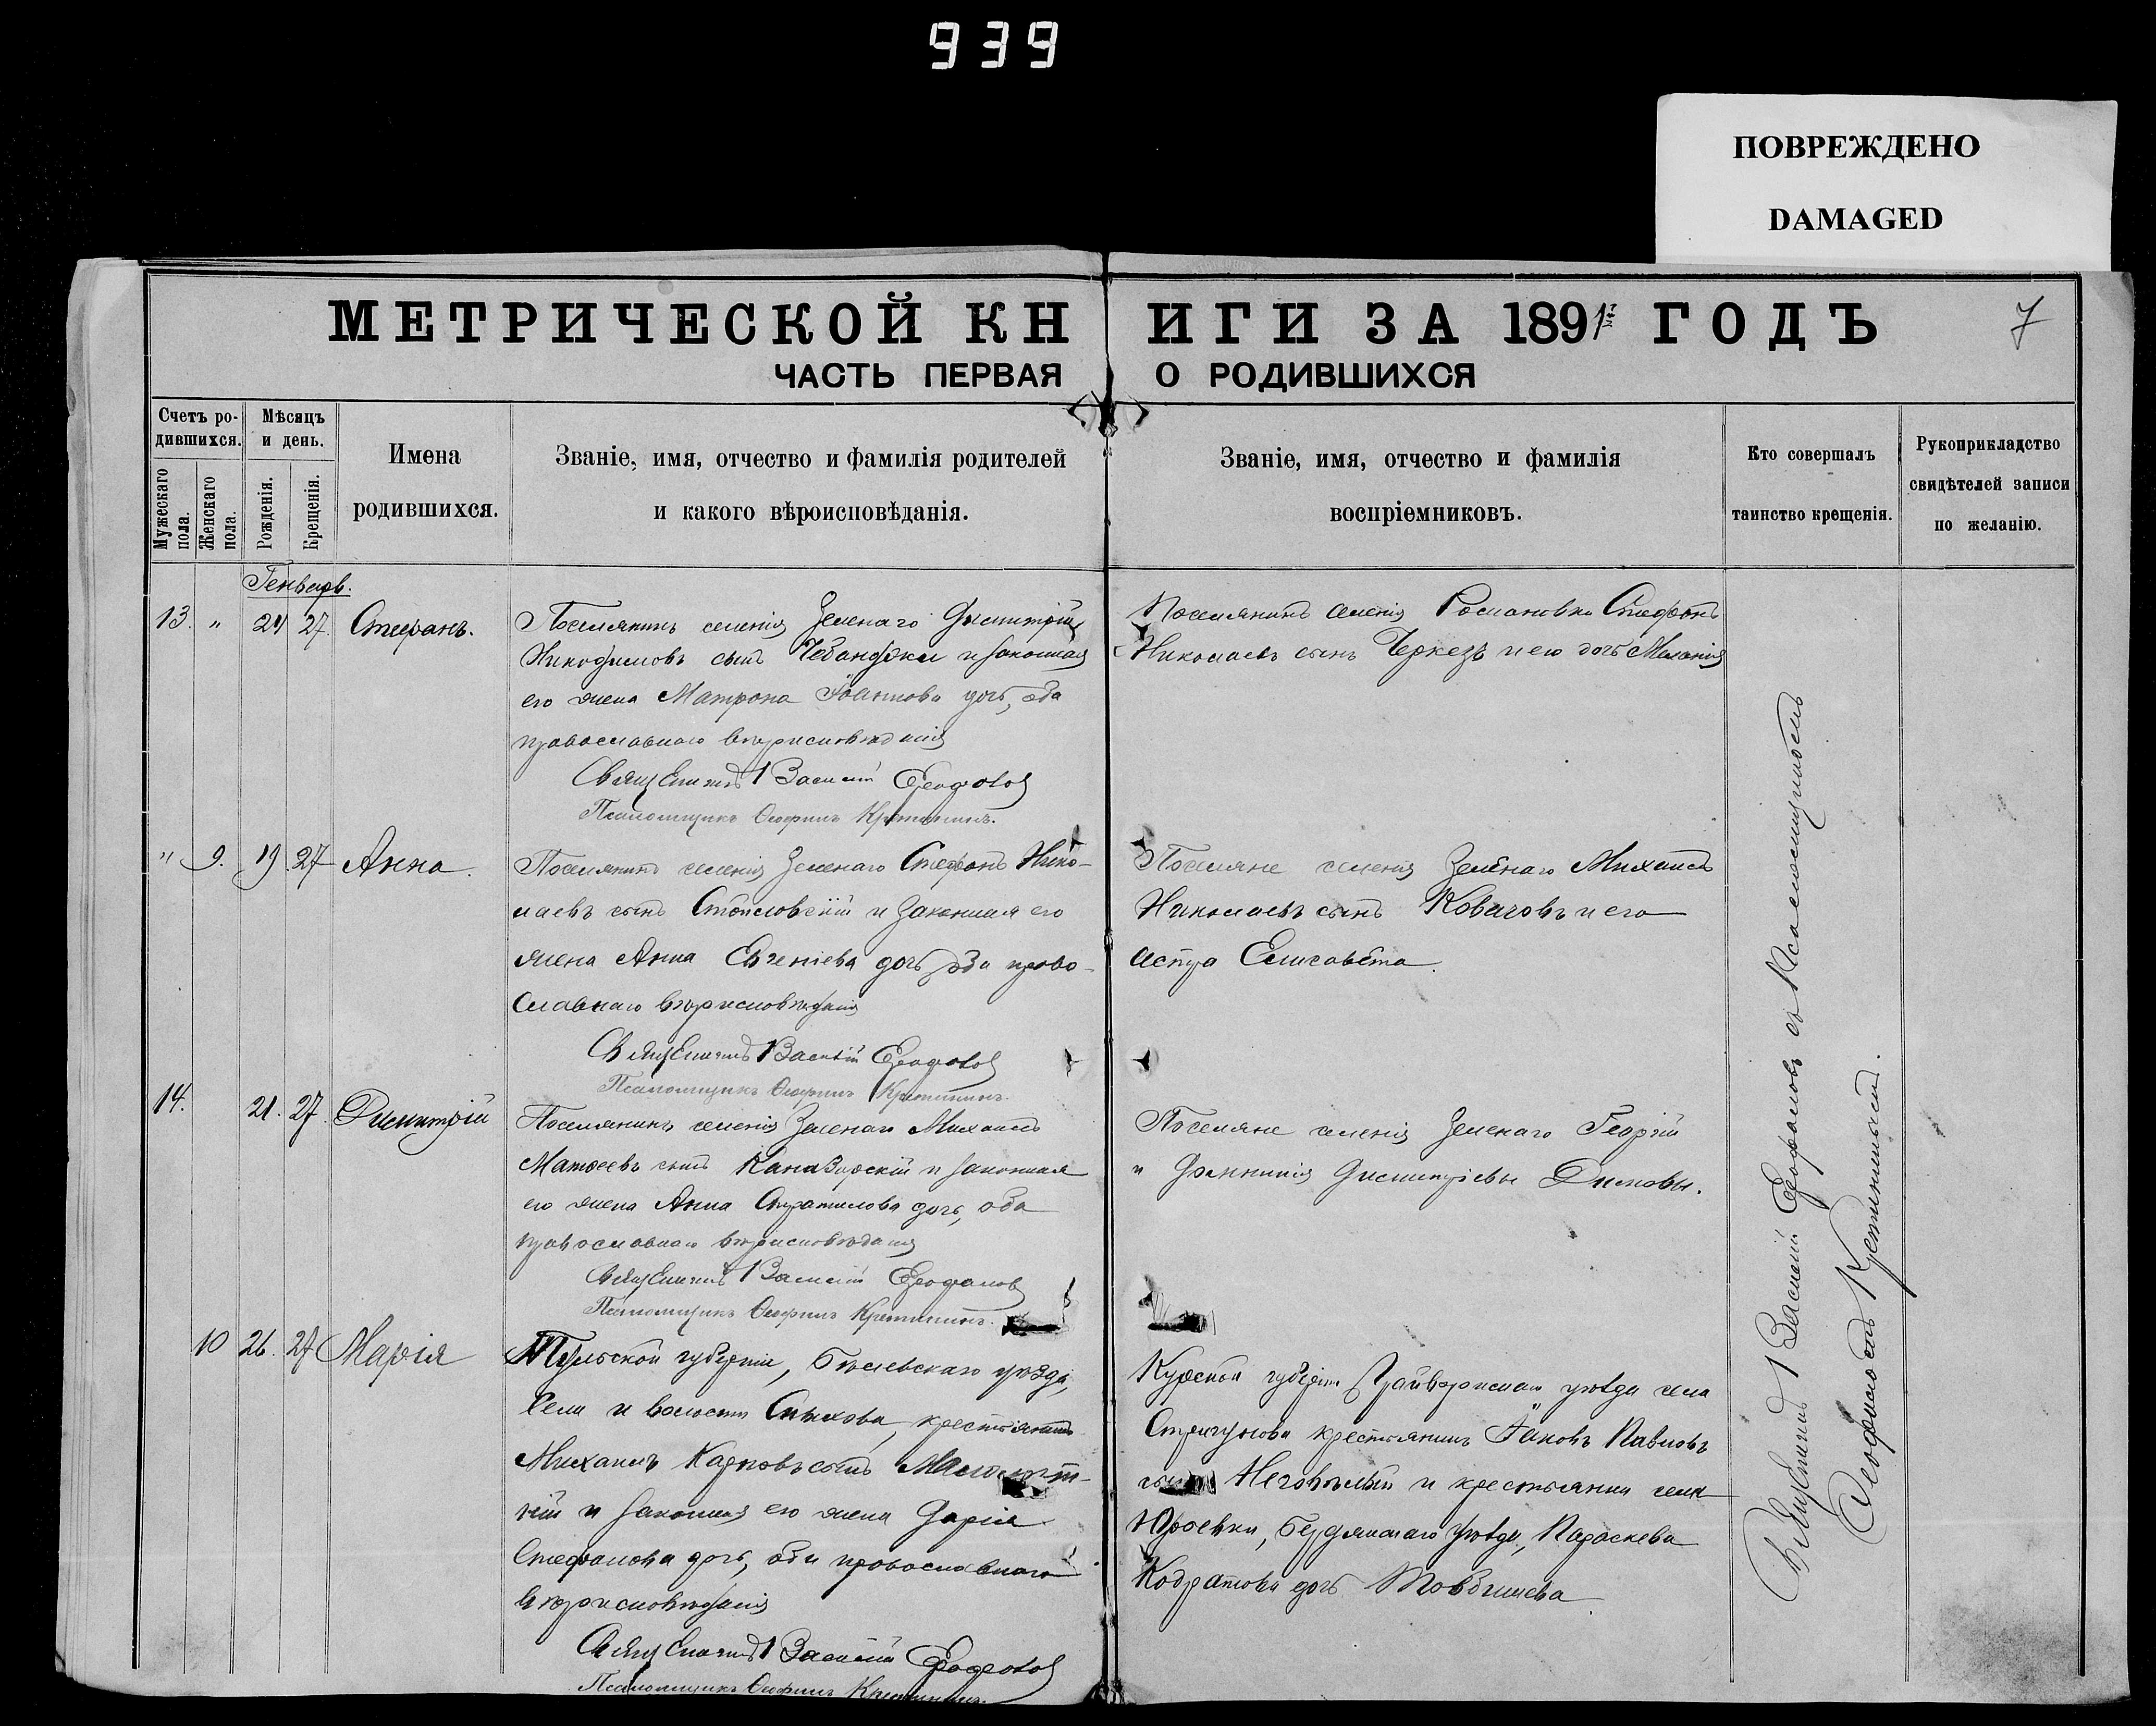 939
ПОВРЕЖДЕНО
DAMAGED
МЕТРИЧЕСКОЙ КНИГИ ЗА 1891 ГОДЪ
7
ЧАСТЬ ПЕРВАЯ О РОДИВШИХСЯ
Счетъ ро-
дившихся.
Мужескаго пола.
Женскаго пола.
Мѣсяцъ
и день.
Рожденія.
Крещенія.
Имена
родившихся.
Званіе, имя, отчество и фамилія родителей
и какого вѣроисповѣданія.
Званіе, имя, отчество и фамилія
воспріемниковъ.
Кто совершалъ
таинство крещенія.
Рукоприкладство
свидѣтелей записи
по желанію.
Генварь.
13. " 24 27. Стефанъ.
Поселянинъ селенія Зеленаго Димитрій
Никодимовъ сынъ Чебанджи и законная
его жена Матрона Іоаннова дочь, оба
православнаго вѣроисповѣданія
Священникъ Василій
Псаломщикъ Ѳеофилъ
Поселянинъ селенія Романовки Стефанъ
Николаевъ сынъ Черкезъ и его дочь Меланія
" 9. 19 27 Анна.
Поселянинъ селенія Зеленаго Стефанъ Нико-
лаевъ сынъ и законная его
жена Анна Евгеніева дочь, оба право-
славнаго вѣроисповѣданія
Священникъ Василій
Псаломщикъ Ѳеофилъ
Поселяне селенія Зеленаго Михаилъ
Николаевъ сынъ Ковачовъ и его
сестра Елисавета.
14. 21. 27. Димитрій
Поселянинъ селенія Зеленаго Михаилъ
Матѳеевъ сынъ и законная
его жена Анна Стратилова дочь, оба
православнаго вѣроисповѣданія
Священникъ Василій
Псаломщикъ Ѳеофилъ
Поселяне селенія Зеленаго Георгій
и Димитріевы Димовы.
10 26. 27 Марія
Тульской губерніи, Бѣлевскаго уѣзда,
села и волости крестьянинъ
Михаилъ Карповъ сынъ
и законная его жена Дарія
Стефанова дочь, оба православнаго
вѣроисповѣданія
Священникъ Василій
Псаломщикъ Ѳеофилъ
Курской губерніи Грайворонскаго уѣзда села
Стригунова крестьянинъ Іаковъ Павловъ
сынъ и крестьянка села
Юрьевки, Бердянскаго уѣзда, Параскева
Кодратова дочь
Священникъ Василій съ Псаломщикомъ
Ѳеофиломъ